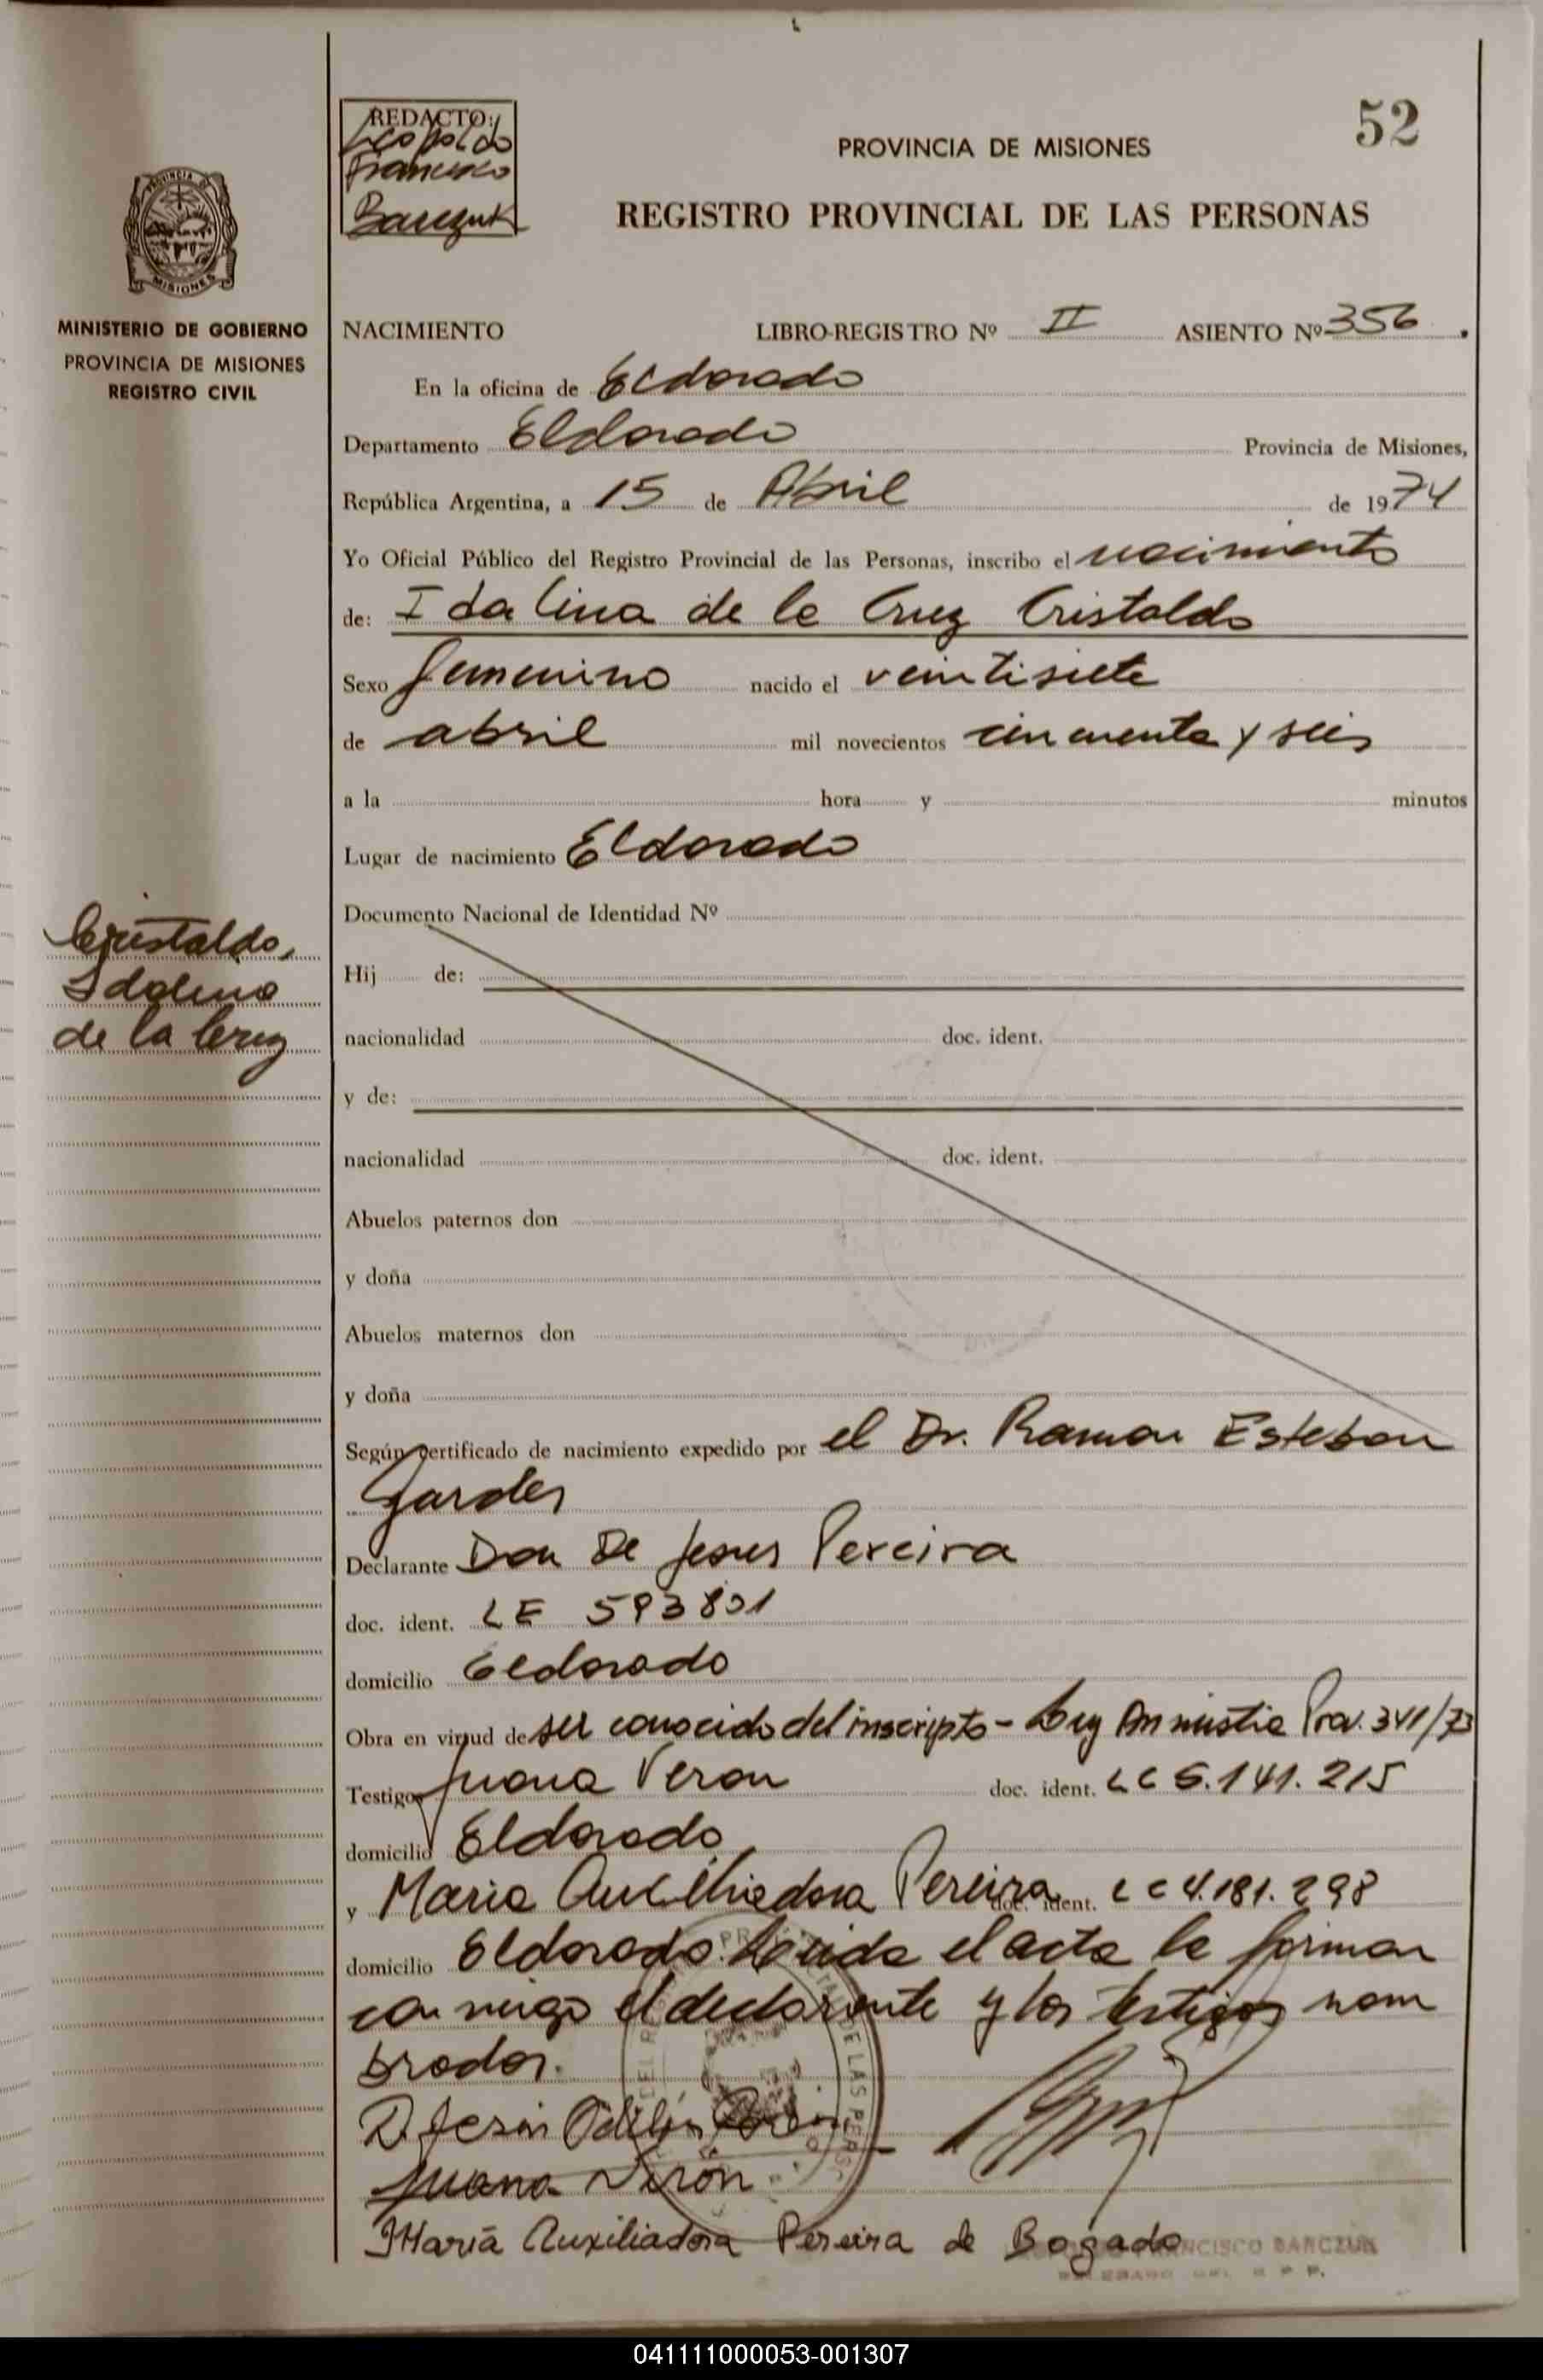 52
REDACTO:
Leopoldo
Francisco
Barczuk
PROVINCIA DE MISIONES
REGISTRO PROVINCIAL DE LAS PERSONAS
PROVINCIA DE
MISIONES
MINISTERIO DE GOBIERNO
PROVINCIA DE MISIONES
REGISTRO CIVIL
NACIMIENTO LIBRO-REGISTRO Nº II ASIENTO Nº 356.
En la oficina de Eldorado
Departamento Eldorado Provincia de Misiones,
República Argentina, a 15 de Abril de 1974
Yo Oficial Público del Registro Provincial de las Personas, inscribo el nacimiento
de: Idalina de la Cruz Cristaldo
Sexo femenino nacido el veintisiete
de abril mil novecientos cincuenta y seis
a la hora y minutos
Lugar de nacimiento Eldorado
Documento Nacional de Identidad Nº
Cristaldo,
Idalina
de la Cruz
Hij de:
nacionalidad doc. ident.
y de:
nacionalidad doc. ident.
Abuelos paternos don
y doña
Abuelos maternos don
y doña
Según certificado de nacimiento expedido por el Dr. Ramon Esteban
Gardes
Declarante Don De Jesus Pereira
doc. ident. LE 593831
domicilio Eldorado
Obra en virtud de ser conocido del inscripto - Ley Amnistia Prov. 341/73
Testigos Juana Veron doc. ident. LC 6.141.215
domicilio Eldorado
y Maria Auxiliadora Pereira doc. ident. LC 4.181.298
domicilio Eldorado. Leida el acta la firman
conmigo el declarante y los testigos nom
brados.
D. Jesús Odilón
Juana Verón
María Auxiliadora Pereira de Bogado
FRANCISCO BARCZUK
041111000053-001307